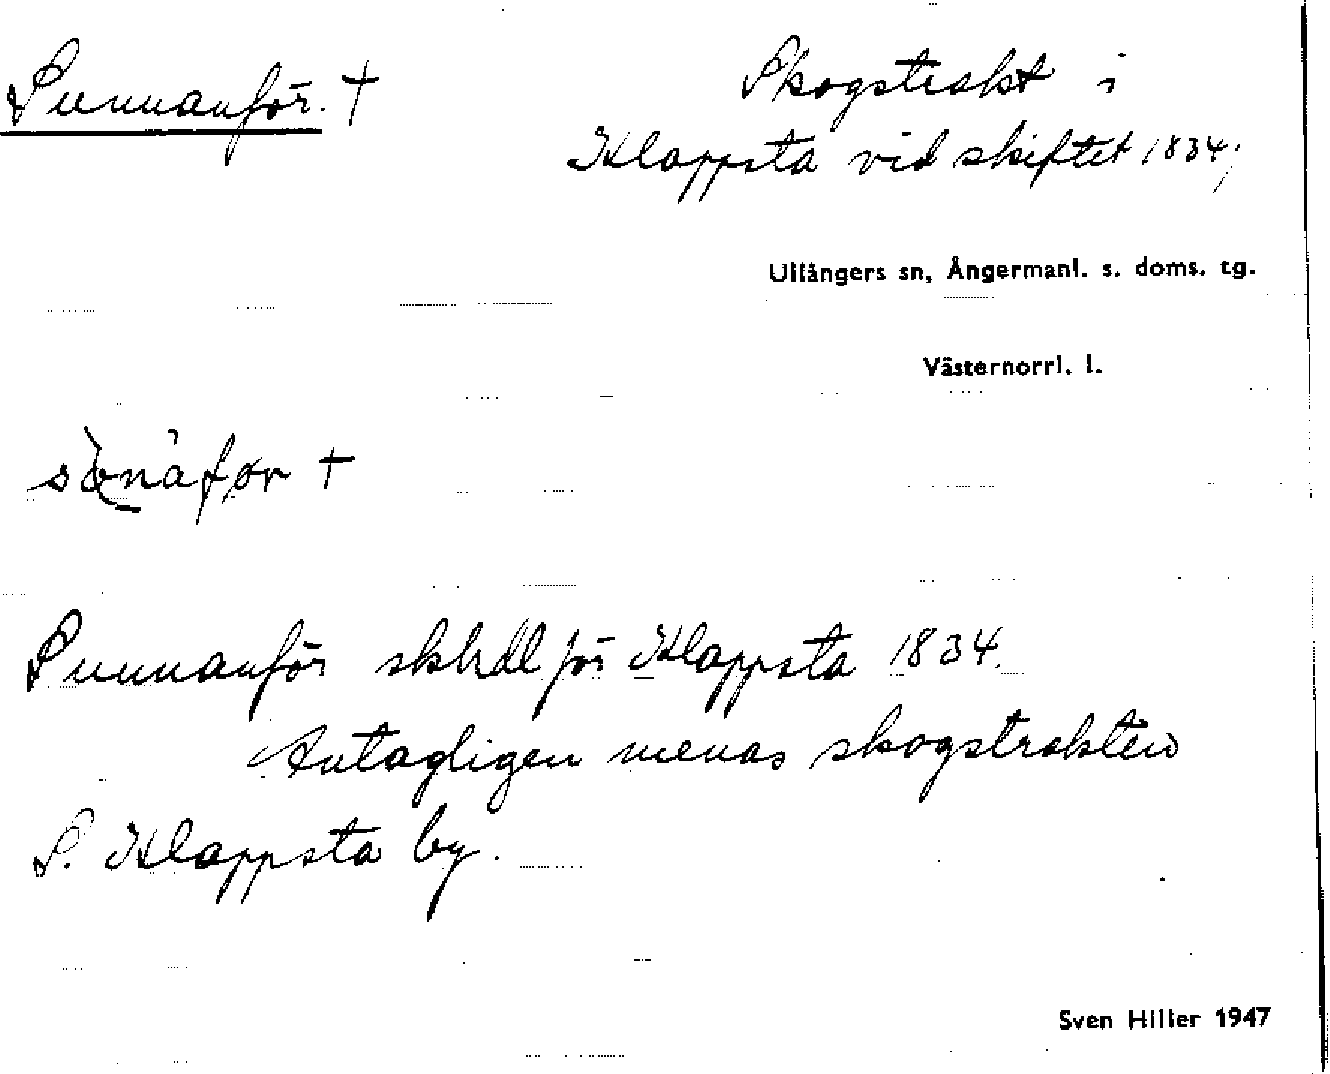 Sunnanför. †
Skogstrakt i
Klappsta vid skiftet 1834;
Ullångers sn, Ångermanl. s. doms. tg.
Västernorrl. l.
†
Sunnanför skhdl för Klappsta 1834.
Antagligen menas skogstrakten
S. Klappsta by.
Sven Hiller 1947